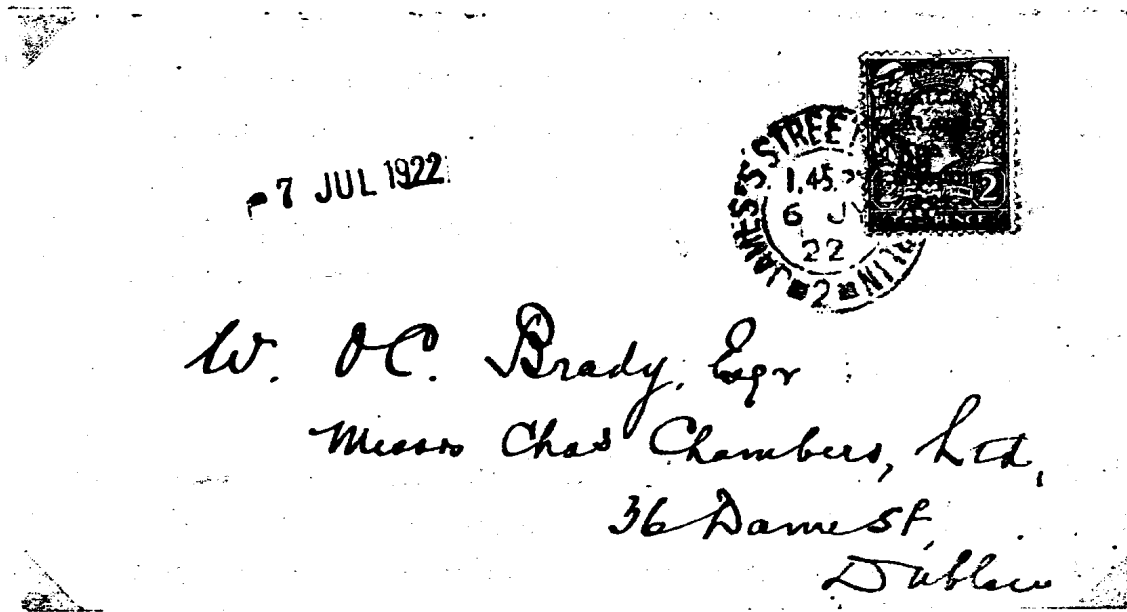 7 JUL 1922
JAMES'S STREET
1.45
6 JY
22
2
2 2
W. O C. Brady, Esqr
Messrs Chas Chambers, Ltd,
36 Dame St,
Dublin